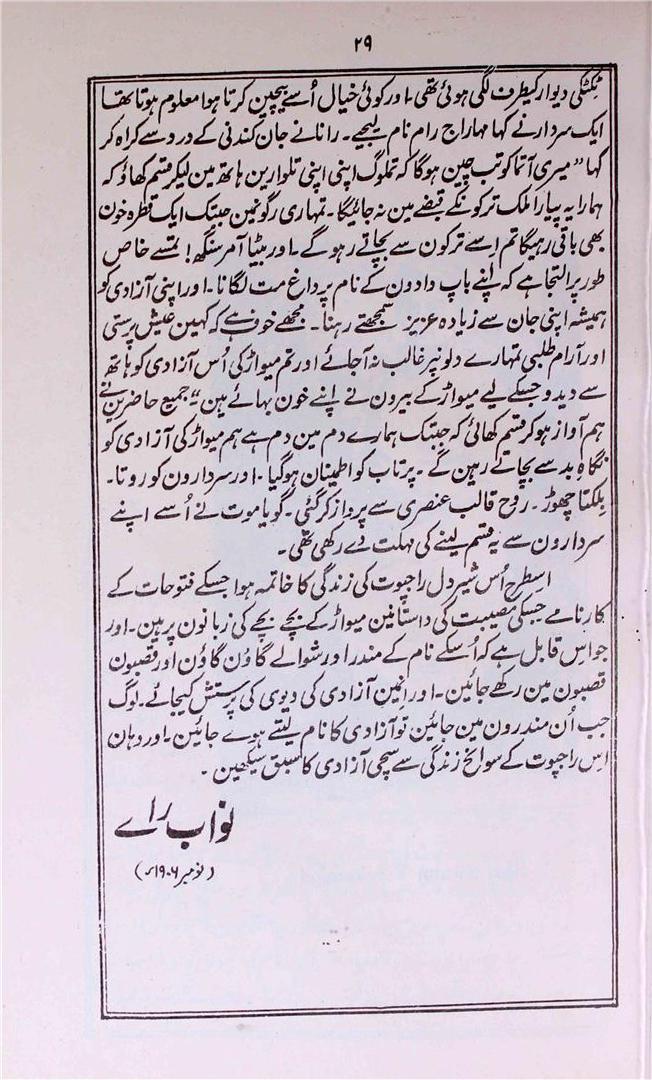 ۲۹
ٹکٹکی دیوار کیطرف لگی ہوئی تھی۔ اور کوئی خیال اُسے بیچین کرتا ہوا معلوم ہوتا تھا
ایک سردار نے کہا مہاراج رام نام لیجیے۔ رانا نے جان کندنی کے درد سے کراہ کر
کہا "میری آتما کو تب چین ہوگا کہ تملوگ اپنی اپنی تلوارین ہاتھ مین لیکر قسم کھاؤ کہ
ہمارا یہ پیارا ملک ترکونکے قبضے مین نہ جائیگا۔ تمہاری رگونمین جبتک ایک قطرہ خون
بھی باقی رہیگا تم اِسے ترکون سے بچاتے رہو گے۔ اور بیٹا امر سنگھ! تمسے خاص
طور پر التجا ہے کہ اپنے باپ دادون کے نام پر داغ مت لگانا۔ اور اپنی آزادی کو
ہمیشہ اپنی جان سے زیادہ عزیز سمجھتے رہنا۔ مجھے خوف ہے کہ کہین عیش پرستی
اور آرام طلبی تمہارے دلونپر غالب نہ آجائے اور تم میواڑ کی اُس آزادی کو ہاتھ
سے دیدو جسکے لیے میواڑ کے بیرون نے اپنے خون بہائے ہین"۔ جمیع حاضرین نے
ہم آواز ہو کر قسم کھائی کہ جبتک ہمارے دم مین دم ہے ہم میواڑ کی آزادی کو
نگاہِ بد سے بچاتے رہین گے۔ پرتاب کو اطمینان ہوگیا۔ اور سردارون کو روتا۔
بلکتا چھوڑ۔ روح قالب عنصری سے پرواز کر گئی۔ گویا موت نے اُسے اپنے
سردارون سے یہ قسم لینے کی مہلت دے رکھی تھی۔
اِسطرح اُس شیر دل راجپوت کی زندگی کا خاتمہ ہوا جسکے فتوحات کے
کارنامے جسکی مصیبت کی داستانین میواڑ کے بچے بچے کی زبانون پر ہین۔ اور
جو اِس قابل ہے کہ اُسکے نام کے مندر اور شوالے گاؤن گاؤن اور قصبون
قصبون مین رکھے جائین۔ اور انمین آزادی کی دیوی کی پرستش کیجائے۔ لوگ
جب اُن مندرون مین جائین تو آزادی کا نام لیتے ہوے جائین۔ اور وہان
اِس راجپوت کے سوانح زندگی سے سچی آزادی کا سبق سیکھین۔
نواب راے
(نومبر ۱۹۰۶ء)